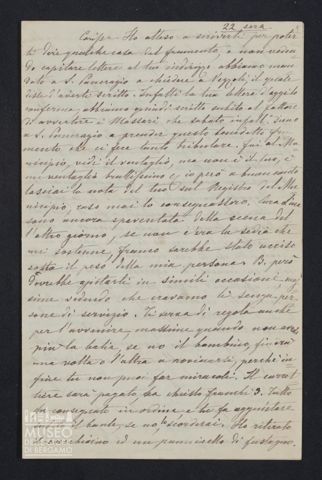 22 sera
Ho atteso a scriverti per poter
ti dire qualche cosa del frumento, e non veden
do capitare lettere al tuo indirizzo abbiamo man
dato a S. Pancrazio a chiedere a Pezzoli, il quale
disse d'averti scritto. Infatti la tua lettera d'oggi lo
conferma. abbiamo quindi scritto subito al fattore
di avvertire i Massari che sabato
a S. Pancrazio a prendere questo benedetto fru
mento che ci fece tanto tribolare. fui al Mu
nicipio, vidi il ventaglio, ma non è il tuo, è
un ventaglio bruttissimo e però a buon conto
lasciai la nota del tuo sul Registro del Mu
nicipio, caso mai lo consegnassero.
sono ancora spaventata della scena del
l'altro giorno, se non v'era la seria che
mi sostenne, franco sarebbe stato ucciso
sotto il peso della mia persona. B. però
dovrebbe ajutarti in simili occasioni, mas
sime vedendo che eravamo lì senza per
sone di servizio. Ti serva di regola anche
per l'avvenire, massime quando non avrai
più la balia, se no il bambino, finirà
una volta o l'altra a rovinarsi, perchè in
fine tu non puoi far miracoli. Il carret
tiere sarà pagato, ha chiesto franchi 3. Tutto
fu consegnato in ordine e tu fa acquistare
se no te lo scorderai. Ho ritirato
ed un pannicello di fustagno.
MUSEO
DI BERGAMO